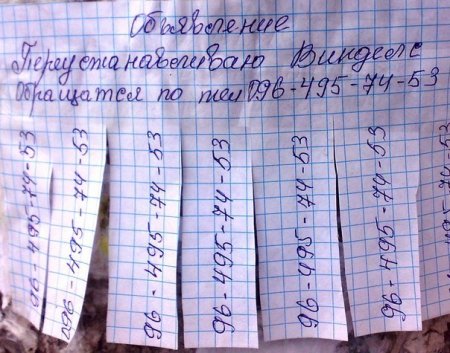 Объявление
Переустанавливаю Виндовс
Обращатся по тел 096-495-74-53
96-495-74-53
096-495-74-53
96-495-74-53
96-495-74-53
96-495-74-53
96-495-74-53
495-74-53